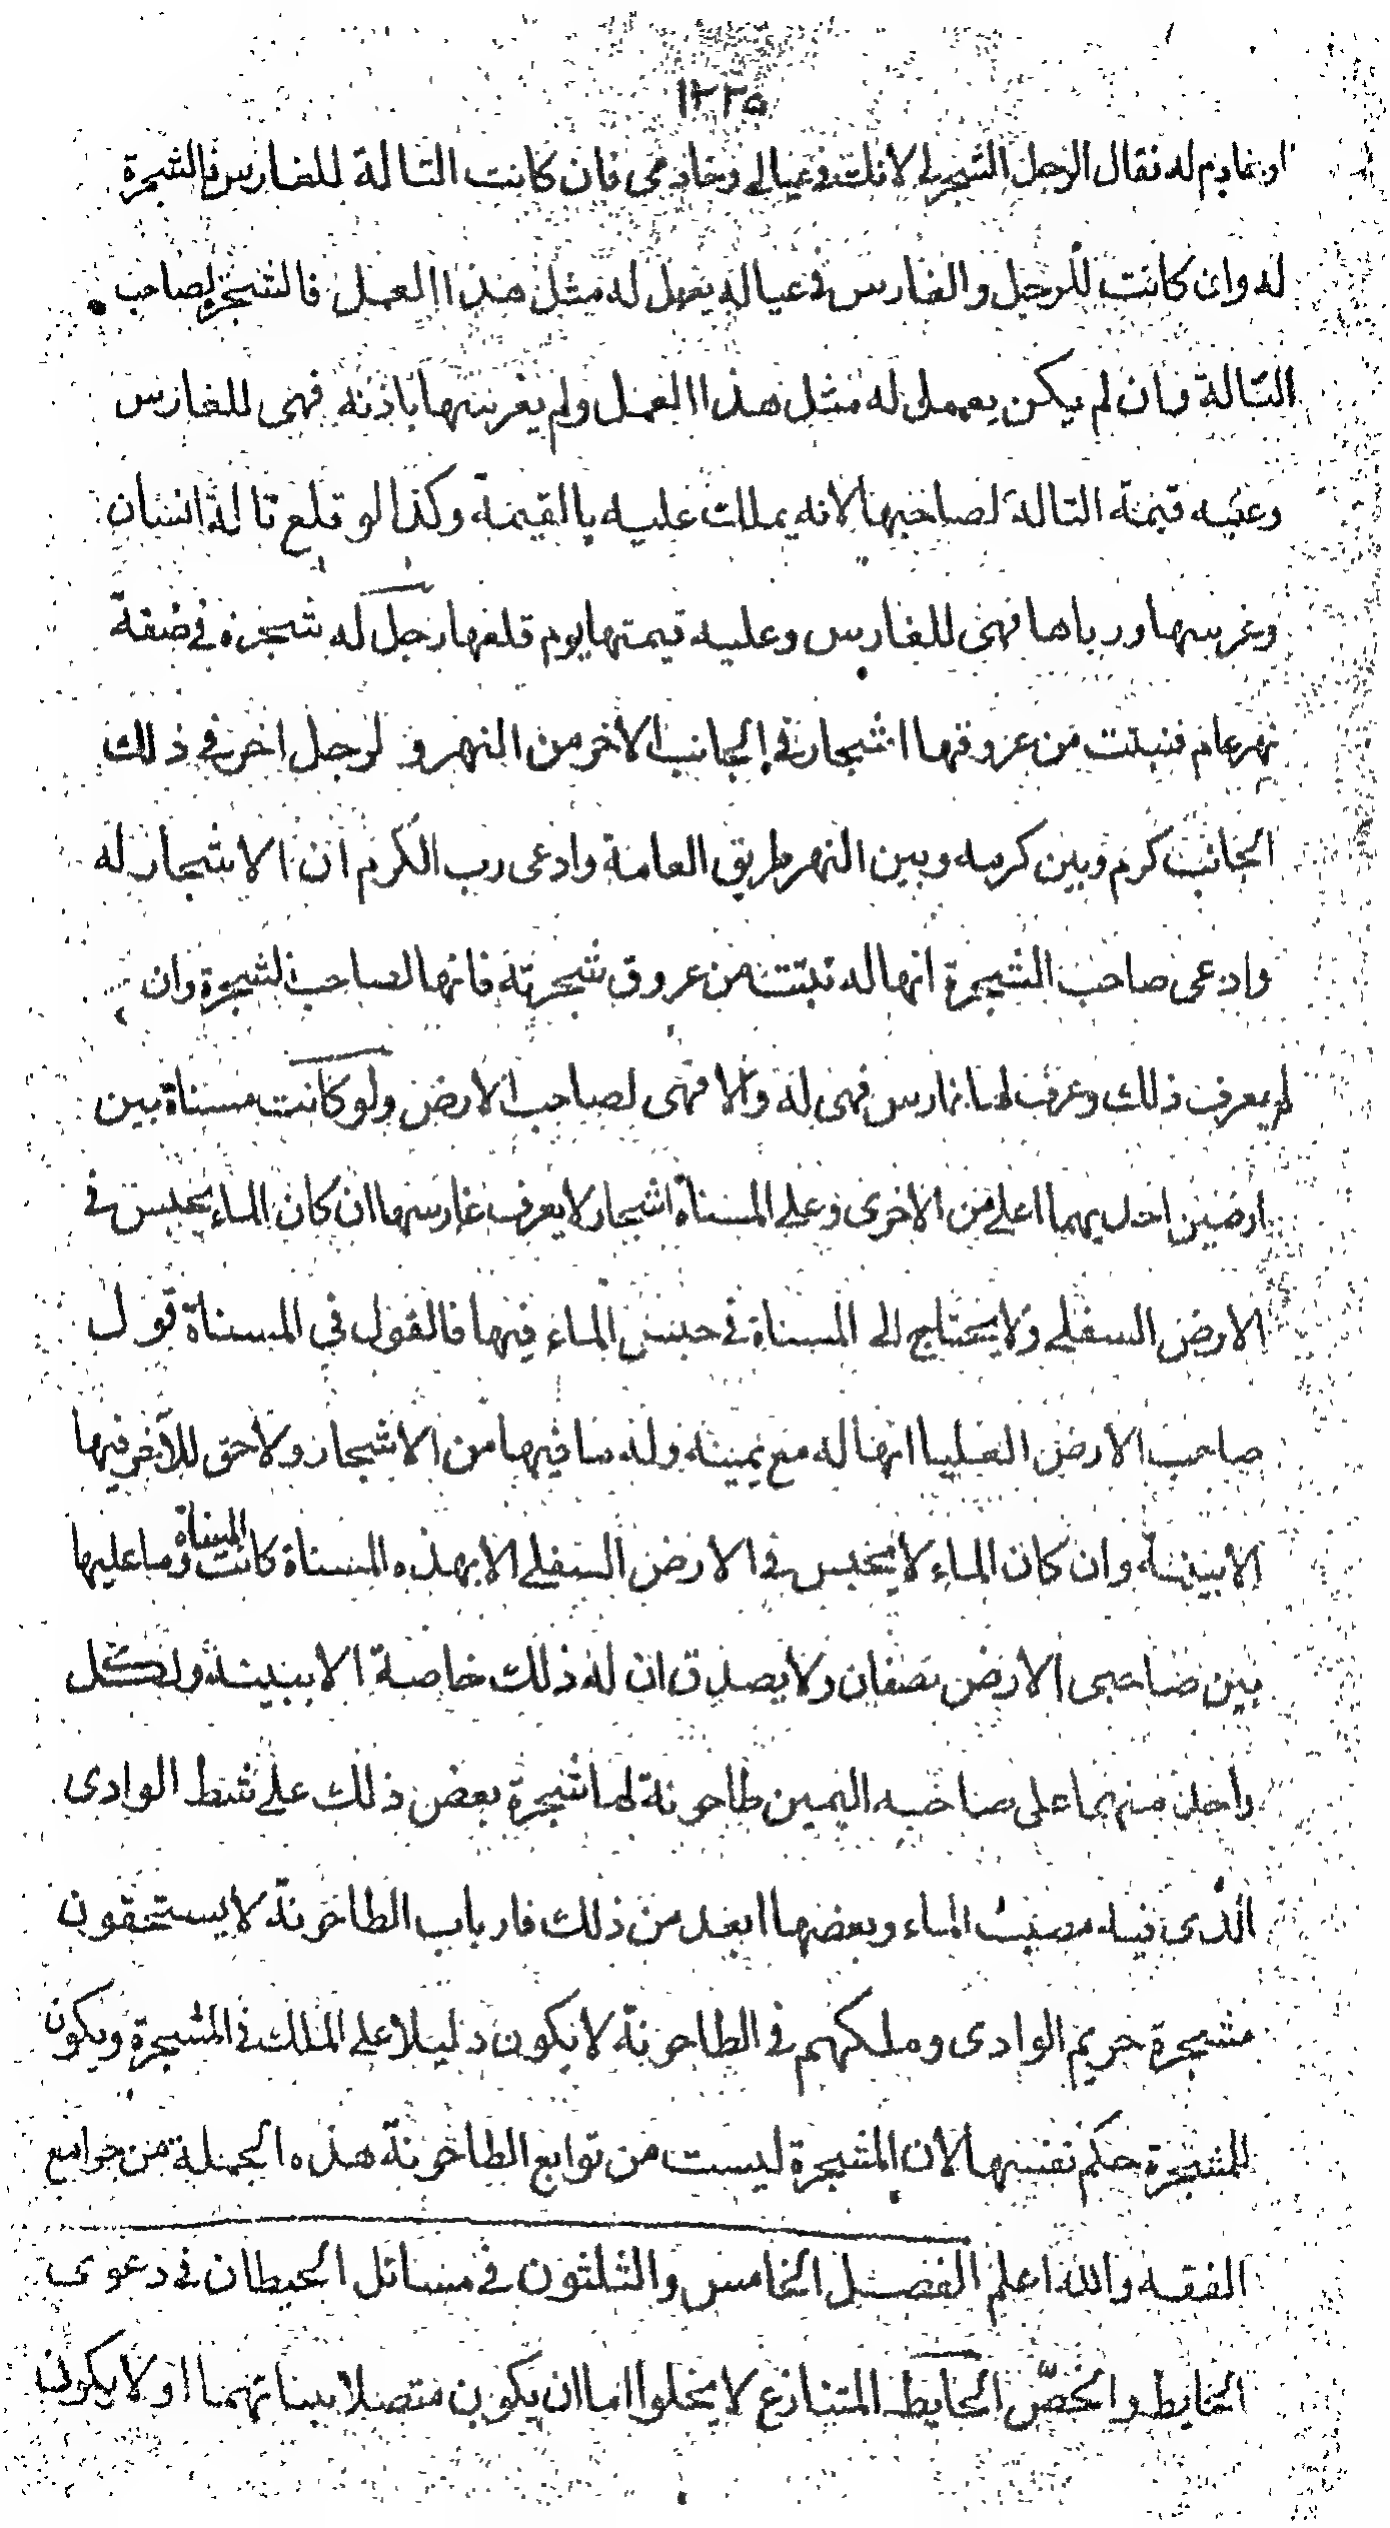 ١٢٢٥
او خادم له فقال الرجل الشجر لى لانك فى عيالى وخادمى فان كانت التالة للغارس فالشجرة
له وان كانت للرجل والغارس فى عياله يعمل له مثل هذا العمل فالشجرة لصاحب
التالة وان لم يكن يعمل له مثل هذا العمل ولم يغرسها باذنه فهى للغارس
وعليه قيمة التالة لصاحبها لانه يملك عليه بالقيمة وكذا لو قلع تالة انسان
وغرسها ورباها فهى للغارس وعليه قيمتها يوم قلعها رجل له شجرة فى ضفة
نهر عام فنبتت من عروقها اشجار فى الجانب الاخر من النهر و لرجل اخر فى ذلك
الجانب كرم وبين كرمه وبين النهر طريق العامة وادعى رب الكرم ان الاشجار له
وادعى صاحب الشجرة انها له نبتت من عروق شجرته فانها لصاحب الشجرة وان
لم يعرف ذلك وعرف لها غارس فهى له والا فهى لصاحب الارض ولو كانت مسناة بين
ارضين احديهما اعلى من الاخرى وعلى المسناة اشجار لا يعرف غارسها ان كان الماء يحبس فى
الارض السفلى ولا يحتاج الى المسناة فى حبس الماء فيها فالقول فى المسناة قول
صاحب الارض العليا انها له مع يمينه وله ما فيها من الاشجار ولا حق للآخر فيها
الا ببينة وان كان الماء لا يحبس فى الارض السفلى الا بهذه المسناة كانت المسناة وما عليها
بين صاحبى الارض نصفان ولا يصدق ان له ذلك خاصة الا ببينة ولكل
واحد منهما على صاحبه اليمين طاحونة لها شجرة بعض ذلك على شط الوادى
الذى فيه مصب الماء وبعضها ابعد من ذلك فارباب الطاحونة لا يستحقون
مشجرة حريم الوادى وملكهم فى الطاحونة لا يكون دليلا على الملك فى المشجرة ويكون
للمشجرة حكم نفسها لان المشجرة ليست من توابع الطاحونة هذه الجملة من جوامع
الفقه والله اعلم الفصل الخامس والثلثون فى مسائل الحيطان فى دعوى
الحايط والخصّ الحايط المتنازع لا يخلوا اما ان يكون متصلا ببنائهما او لا يكون